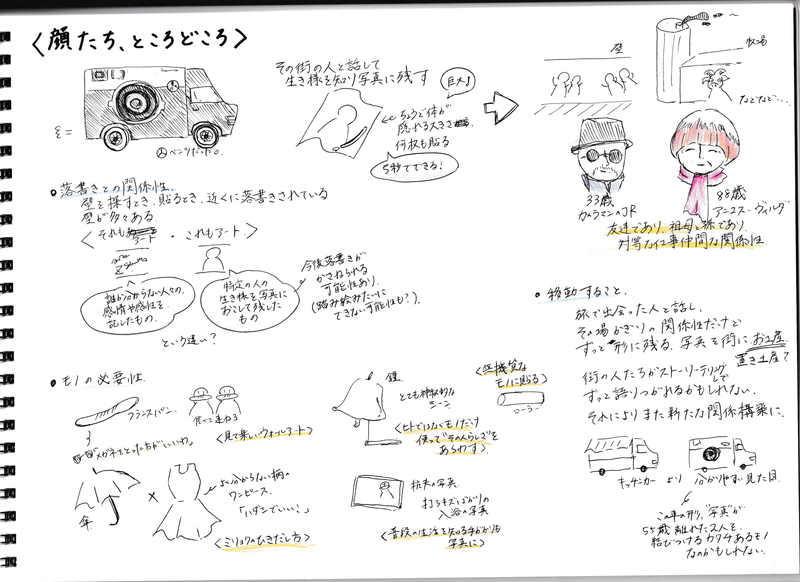 〈顔たち、ところどころ〉
ベンツだった。
その街の人と話して
生き様を知り写真に残す
巨大!
ちょうど体が
隠れる大きさ
何枚も貼る
5秒でできる!
壁
牧場
などなど…
33歳
カメラマンのJR
88歳
アニエス・ヴァルダ
友達であり、祖母と孫であり
対等な仕事仲間な関係性
・落書きとの関係性。
壁を探すとき、貼るとき、近くに落書きされている
壁が多々ある。
〈それもアート ・ これもアート〉
誰か分からない人々の、
感情や感性を
記したもの。
特定の人の
生き様を写真に
おこして残した
もの
という違い?
今後落書きが
かさねられる
可能性あり。
(踏み絵みたいに
できない可能性も?)
・モノの必要性。
フランスパン。
食べて連ねる
メガネをとった方がいいわ。
〈見て楽しいウォールアート〉
傘
×
よく分からない柄の
ワンピース。
「ハダシでいい?」
〈ミリョクのひきだし方〉
鐘
とても神秘的な
シーン。
〈ヒトではなくモノだけ
使って“その人らしさ”を
あらわす〉
〈無機質な
モノに貼る〉
ローラー
炭夫の写真
打ちキズばかりの
入浴の写真
〈普段の生活を知る手がかりも
写真に〉
・移動すること。
旅で出会った人と話し、
その場かぎりの関係性だけど
ずっと形に残る。写真を街にお土産。
置き土産?
街の人たちがストーリーテリングして
ずっと語りつがれるかもしれない。
それによりまた新たな関係構築に。
キッチンカー より 分かりやすい見た目
この車の形、“写真”が
55歳離れた2人を、
結びつけるカタチあるモノ
なのかもしれない。